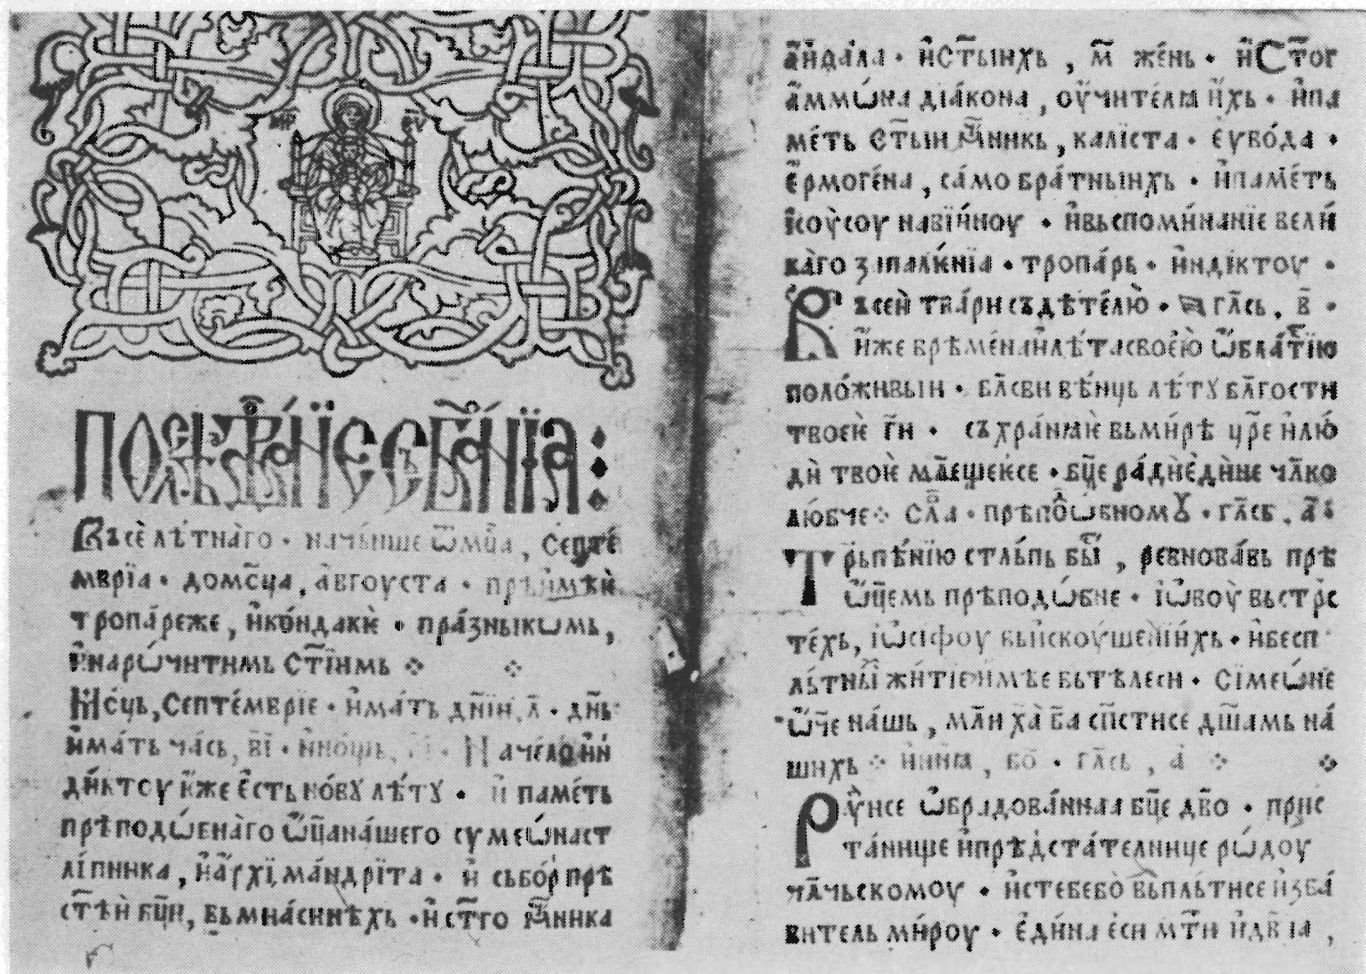 ПОСЛѢДОВАНЇЕ СЪБРАНЇꙖ:
Въсѐ лѣ́тнаго · наче́нше ѿ мц҃а , септе́
мврїа · до мс҃ца , а҆́вгоуста · прѣи҆мѣи
тропа́реже , и҆ко́ндакїе · пра́зныкѡмь ,
и҆наро́читимь ст҃їимь
Мс҃ць , Септе́мврїе · и҆ма́ть дн҃їи , л҃ · дн҃ь
и҆ма́ть ча́сь , в҃ї · и҆но́щь , в҃ї · На че́ло и҆н
ди́ктоу и҆́же е҆́сть но́вꙋ лѣ́тꙋ · и҆ паме́ть
прѣподѡ́бнаго ѿц҃а на́шего сумеѡ́на ст
лї́пника , и҆ а҆рхїма́ндрїта · и҆ сьбо́р прѣ
ст҃ѣи бц҃и , вь мїасинѣхь · и҆ ст҃го мч҃ника
а҆иѳа́ла · и҆ ст҃ыихь , м҃ же́нь · и҆ Ст҃ог
а҆ммѡ́на дїа́кона , оу҆чи́телꙗ и҆́хь · и҆ па
ме́ть ст҃ыи мч҃никь , калїста · еуво́да ·
е҆рмоге́на , са́мо бра́тныихь · и҆ паме́ть
і҆соу́соу нави́ноу · и҆ вьспоми́нанїе вели́
каго запалѥ́нїа · тропа́рь · и҆ндїктоу ·
Въсеи҆ тва́ри съдѣте́лю · гла҃сь . в҃ ·
и҆́же врѣме́на и҆ лѣ́та своею̀ ѡ҆бла́стїю
поло́живыи · бл҃сви вѣ́нць лѣ́тꙋ бл҃гости
твоеѥ гн҃ · съхра́нꙗѥ вь ми́рѣ цр҃е и҆ лю́
ди твоѥ мл҃ещеѥсе · бц҃е ра́ди е҆ди́не чл҃ко
любче · сла҃ · прѣподѡбномꙋ · гла҃сь . а҃ ·
Трьпѣ́нїю стль́пь бы́ , ревнова́вь прѣ
ѡ҆ц҃емь прѣподѡ́бне · їѡ́воу вь стр҃с
те́хь , їѡ́сифоу вь и҆скоуше́нїихь · и҆ бесп
ль́тны́ жи́тїе и҆мѣе вь тѣлеси · сїмеѡ́не
ѿч҃е на́шь , мл҃и ха҃ ба҃ сп҃стисе дш҃амь на́
шихь · и҆ ни́нꙗ , бо҃ · гла҃сь , а҃
Ра́уисе ѡ҆брадова́ннаа бц҃е дв҃о · прис
та́нище и҆ прѣдста́телнице рѡ́доу
чл҃чьскомоу · и҆стебебо̀ вьпль́тисе и҆зба́
витель ми́роу · е҆ди́на е҆си мт҃и и҆ дв҃аа ,